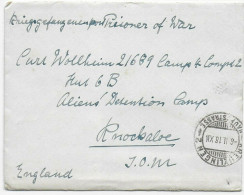 Kriegsgefangenenpost Prisoner of War
Curt Wollheim 21689 Camp 4 Comp 2
Hut 6 B
Aliens Detention Camp
Knockaloe
I.O.M
England